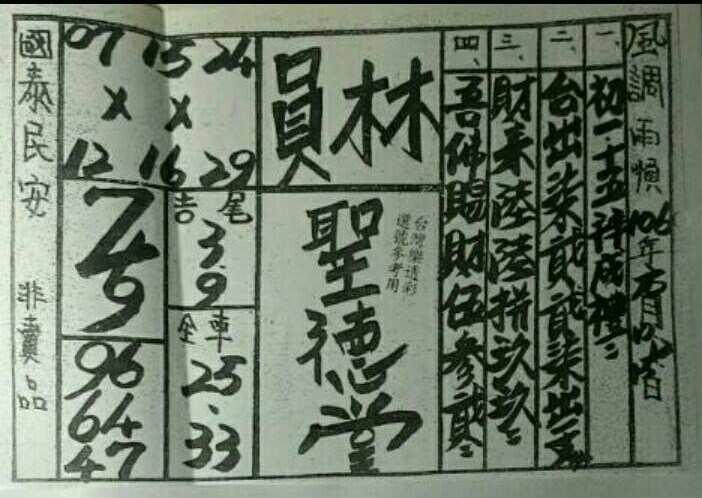 風調雨順 106年
一、初一十五
二、台出柒貳貳柒出
三、財來陸陸拼玖玖
四、吾佛賜財伍參貳
林員
台灣樂透彩
選號參考用
聖德堂
24 15 07
X X
29 16 12
吉尾
3.9
全車
25.33
7
9
96
64
47
國泰民安 非賣品